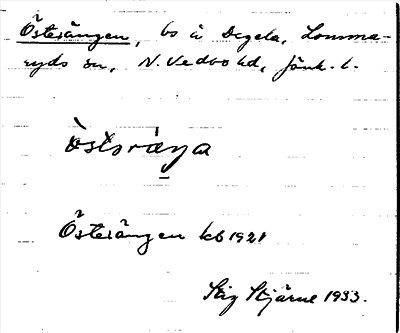 Österängen, bs å Degla, Lomma-
ryds sn, N. Vedbo hd, Jönk. l.
östəräŋa
Österängen kb 1921
Stig Stjärne 1933.